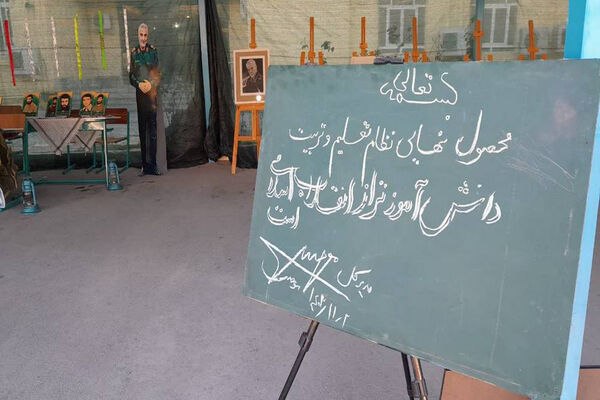 بسمه تعالی
محصول نهایی نظام تعلیم و تربیت
دانش آموز تراز انقلاب اسلامی
است
مدیر کل